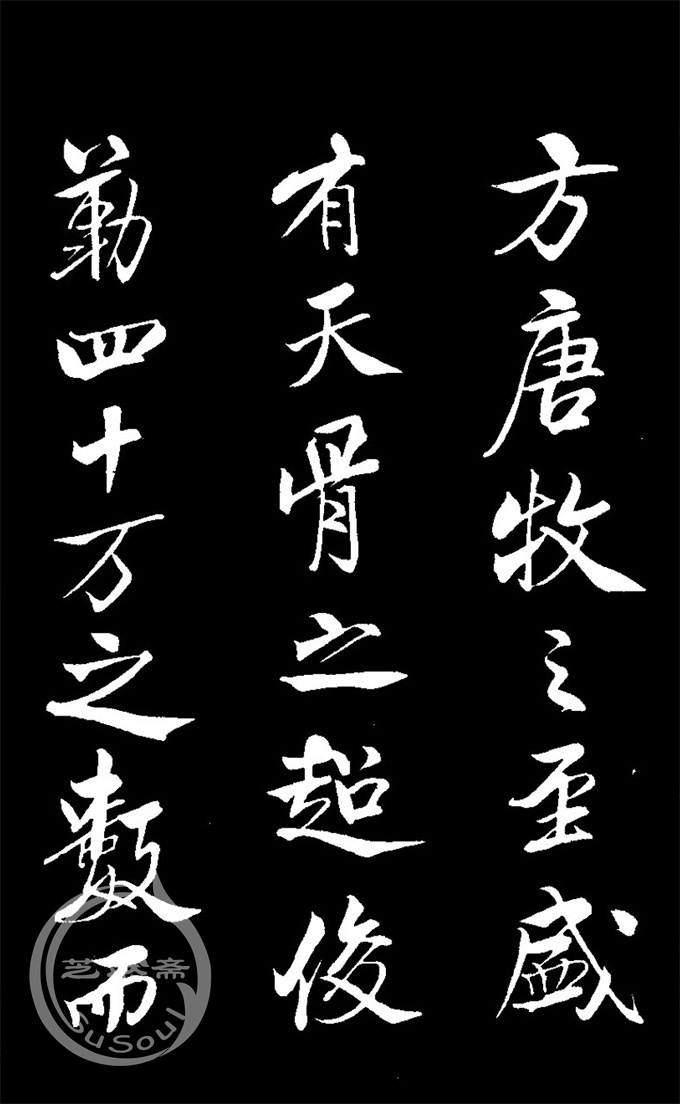 方唐牧之至盛
有天骨之超俊
勒四十万之數而
SuSoul